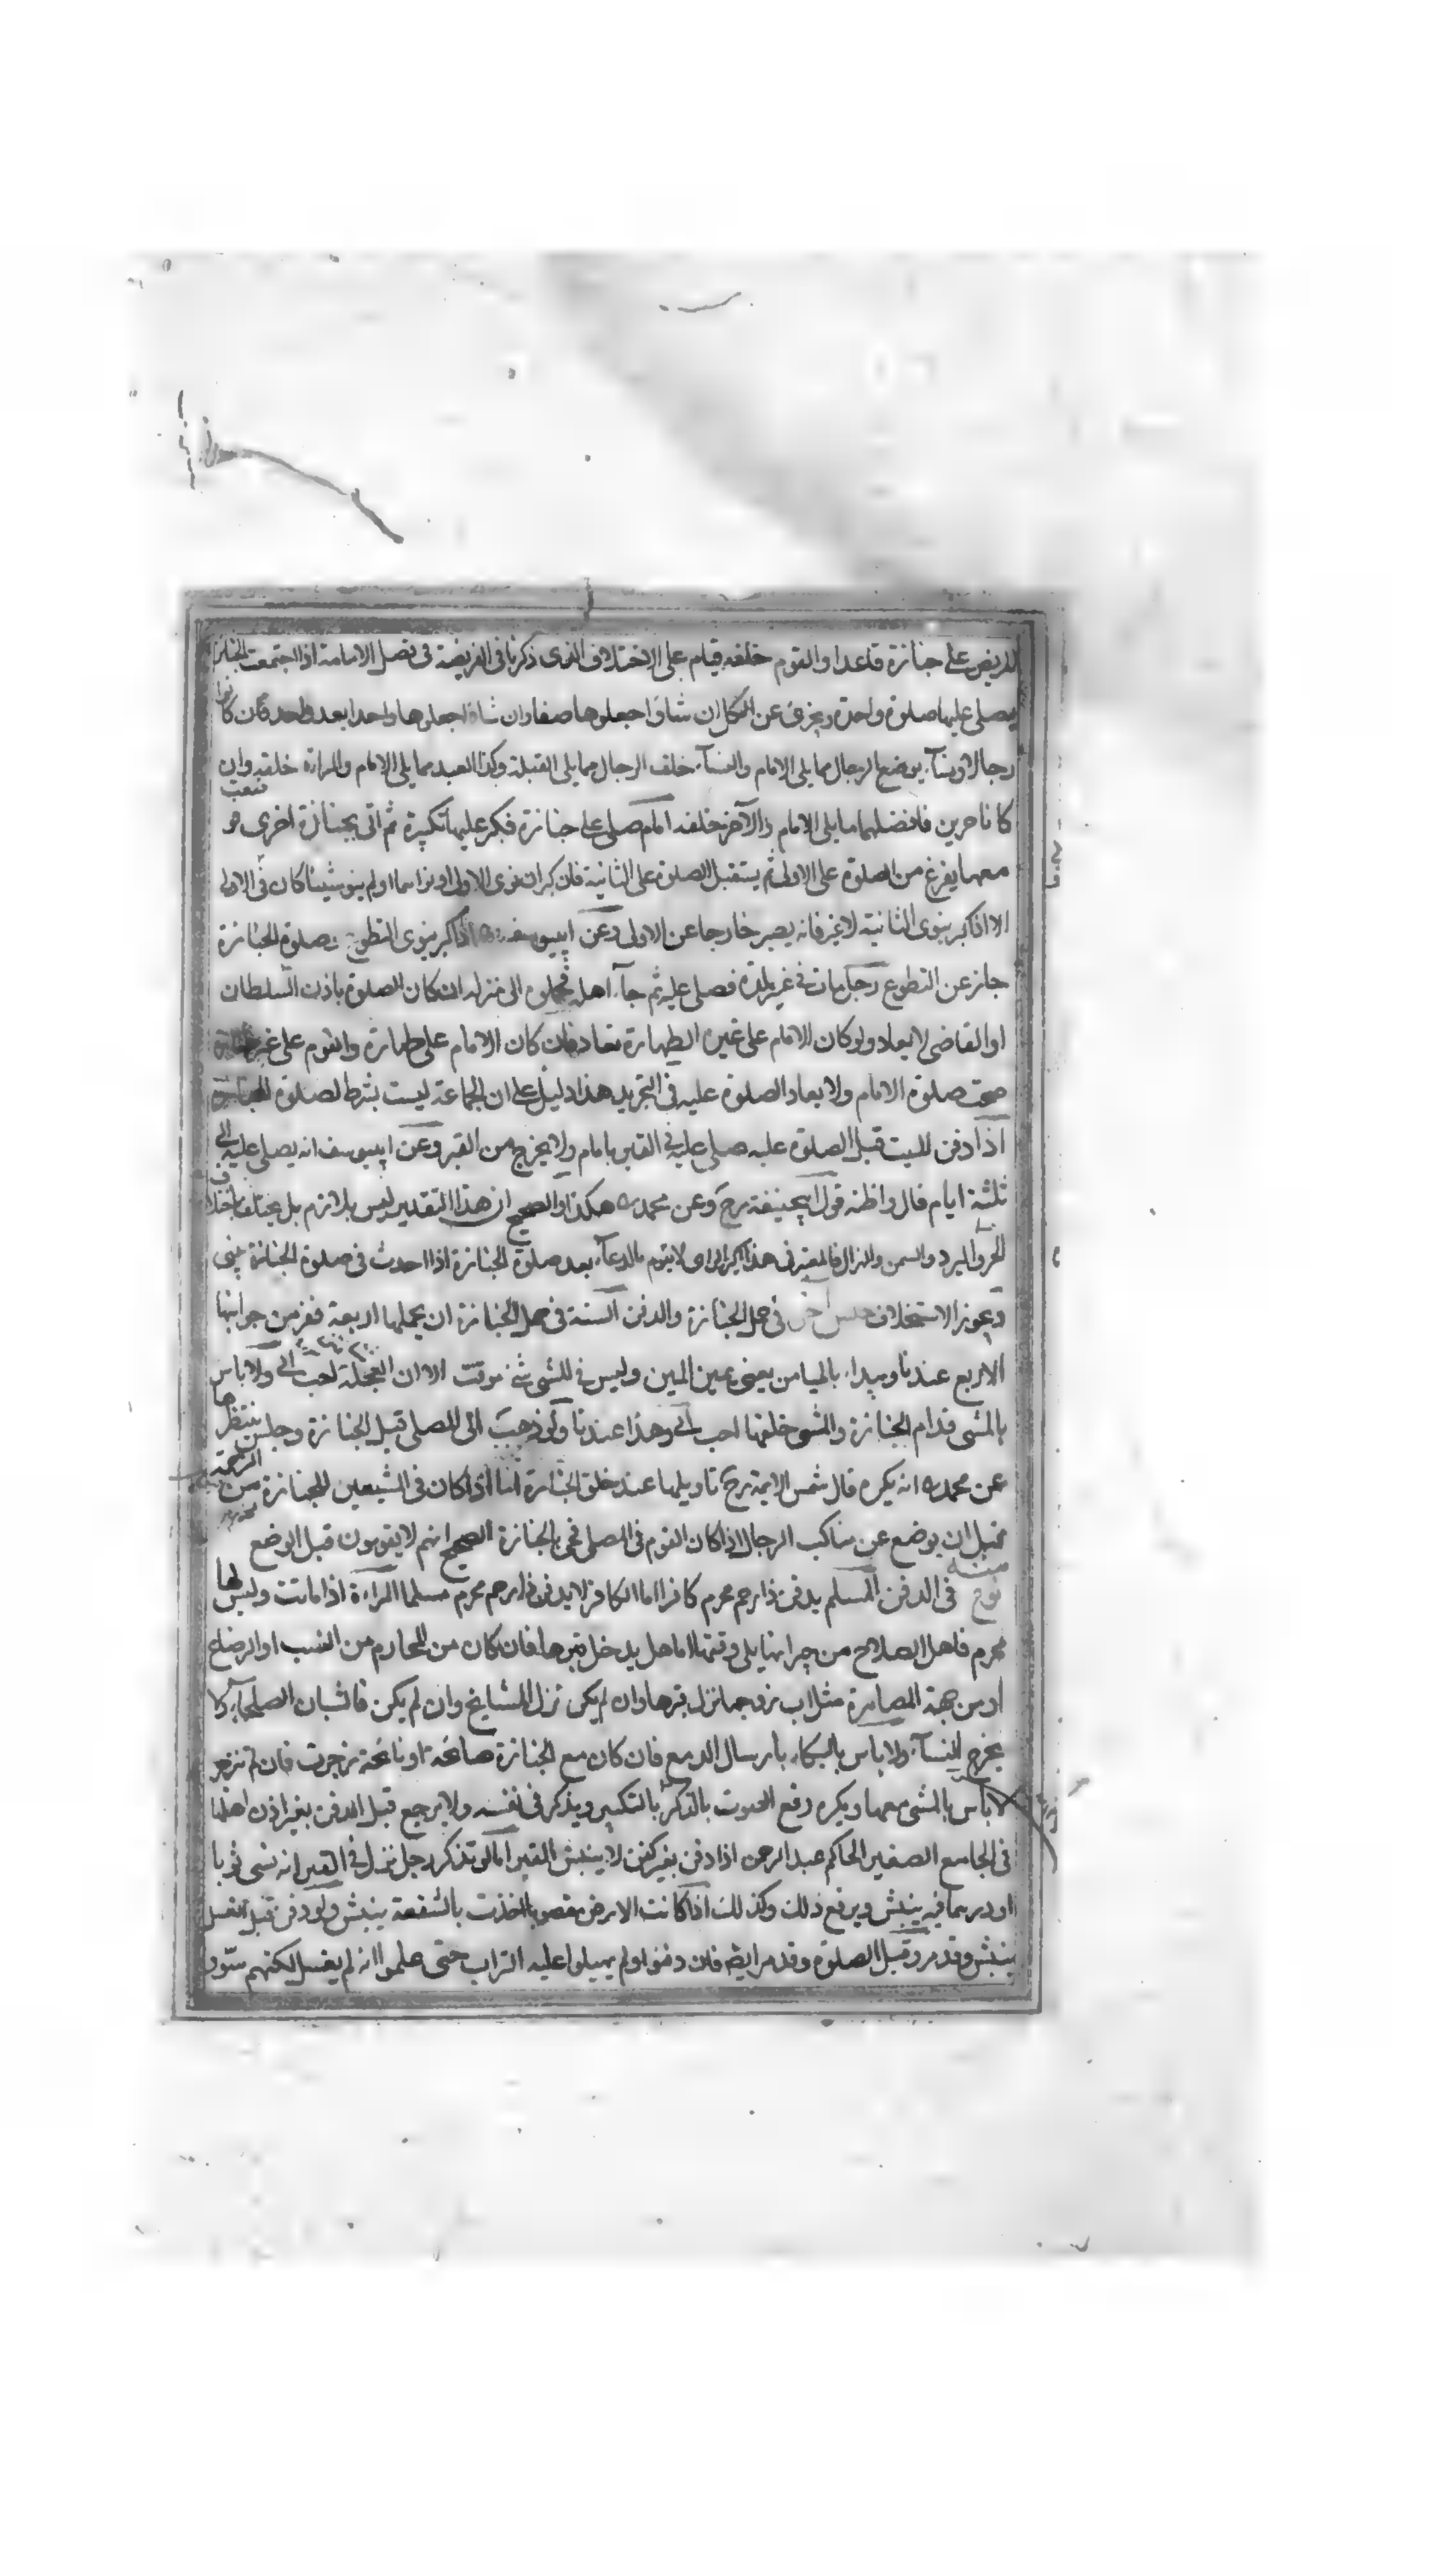 المريض على جنازة قاعدا والقوم خلفه قيام على الاختلاف الذى ذكرنا فى الفريضة فى فصل الامامة اذا اجتمعت الجنائز
يصلى عليها صلوة واحدة ويجزى عن الكل ان شاؤا جعلوها صفا وان شاؤا جعلوها واحدا بعد واحد فان كانوا
رجالا ونسآء يوضع الرجال مما يلى الامام والنسآء خلف الرجال مما يلى القبلة وكذا العبد مما يلى الامام والمراة خلفه وان
كانا حرين فافضلهما مما يلى الامام والآخر خلفه امام صلى على جنازة فكبر عليها تكبيرة ثم اتى بجنازة اخرى فوضعت
معها يفرغ من الصلوة على الاولى ثم يستقبل الصلوة على الثانية فان كبر ان نوى الاولى او نواهما او لم ينو شيئا كان فى الاولى
الا اذا كبر ينوى الثانية لا غير فانه يصير خارجا عن الاولى وعن ابيوسف اذا كبر ينوى التطوع بصلوة الجنازة
جاز عن التطوع رجل مات فى غير بلده فصلى عليه ثم جآء اهله فحملوه الى منزله ان كان الصلوة باذن السلطان
او القاضى لا يعاد ولو كان الامام على غير الطهارة تعاد فان كان الامام على طهارة والقوم على غير
صحت صلوة الامام ولا يعاد الصلوة عليه فى التجريد هذا دليل على ان الجماعة ليست بشرط لصلوة الجنازة
اذا دفن الميت قبل الصلوة عليه صلى عليه فى القبر بامام ولا يخرج من القبر وعن ابيوسف انه يصلى عليه الى
ثلثة ايام قال واظنه قول ابيحنيفة رح وعن محمد هكذا والصحيح ان هذا التقدير ليس بلازم بل يختلف باختلاف
الحر والبرد والسمن والهزال فالمعتبر فى هذا اكبر الراى لا يقوم بالدعآء بعد صلوة الجنازة اذا احدث فى صلوة الجنازة يبنى
ويجوز الاستخلاف جنس آخر فى حمل الجنازة والدفن السنة فى حمل الجنازة ان يحملها اربعة نفر من جوانبها
الاربع عندنا ويبداء بالميامن يعنى يمين الميت وليس فى المشى شئ موقت الا ان العجلة احب الى ولا باس
بالمشى قدام الجنازة والمشى خلفها احب الى وهذا عندنا ولو ذهب الى المصلى قبل الجنازة وجلس ينتظرها
عن محمد انه يكره قال شمس الايمة رح تاويلها عند خلق الجنازة اما اذا كان فى المشيعين للجنازة
قبل ان يوضع عن مناكب الرجال اذا كان القوم فى المصلى فجئ بالجنازة الصحيح انهم لا يقومون قبل الوضع
نوع منه فى الدفن المسلم يدفن ذا رحم محرم كافرا اما الكافر لا يدفن ذا رحم محرم مسلما المراءة اذا ماتت وليس لها
محرم فاهل الصلاح من جيرانها يلى دفنها اما هل يدخل قبرها فان كان من المحارم من النسب او الرضاع
او من جهة المصاهرة مثل اب زوجها نزل قبرها وان لم يكن نزل المشايخ وان لم يكن فالشبان الصلحآء ولا
يخرج النسآء ولا باس بالبكاء بارسال الدمع فان كان مع الجنازة صايحة او نايحة زجرت فان لم تنزجر
لا باس بالمشى معها ويكره رفع الصوت بالذكر بالتكبير ويذكر فى نفسه ولا يرجع قبل الدفن بغير اذن اهلها
فى الجامع الصغير الحاكم عبد الرحمن اذا دفن بغير كفن لا ينبش القبر اما لو تذكر رجل نزل فى القبر انه نسى ثوبا
او درهما فيه ينبش ويرفع ذلك وكذلك اذا كانت الارض مغصوبة اخذت بالشفعة ينبش ولو دفن قبل الغسل
ينبش وقد مر وقبل الصلوة وقد مر ايضا فان دفنوا ولم يهيلوا عليه التراب حتى علموا انه لم يغسل لكنهم سووا